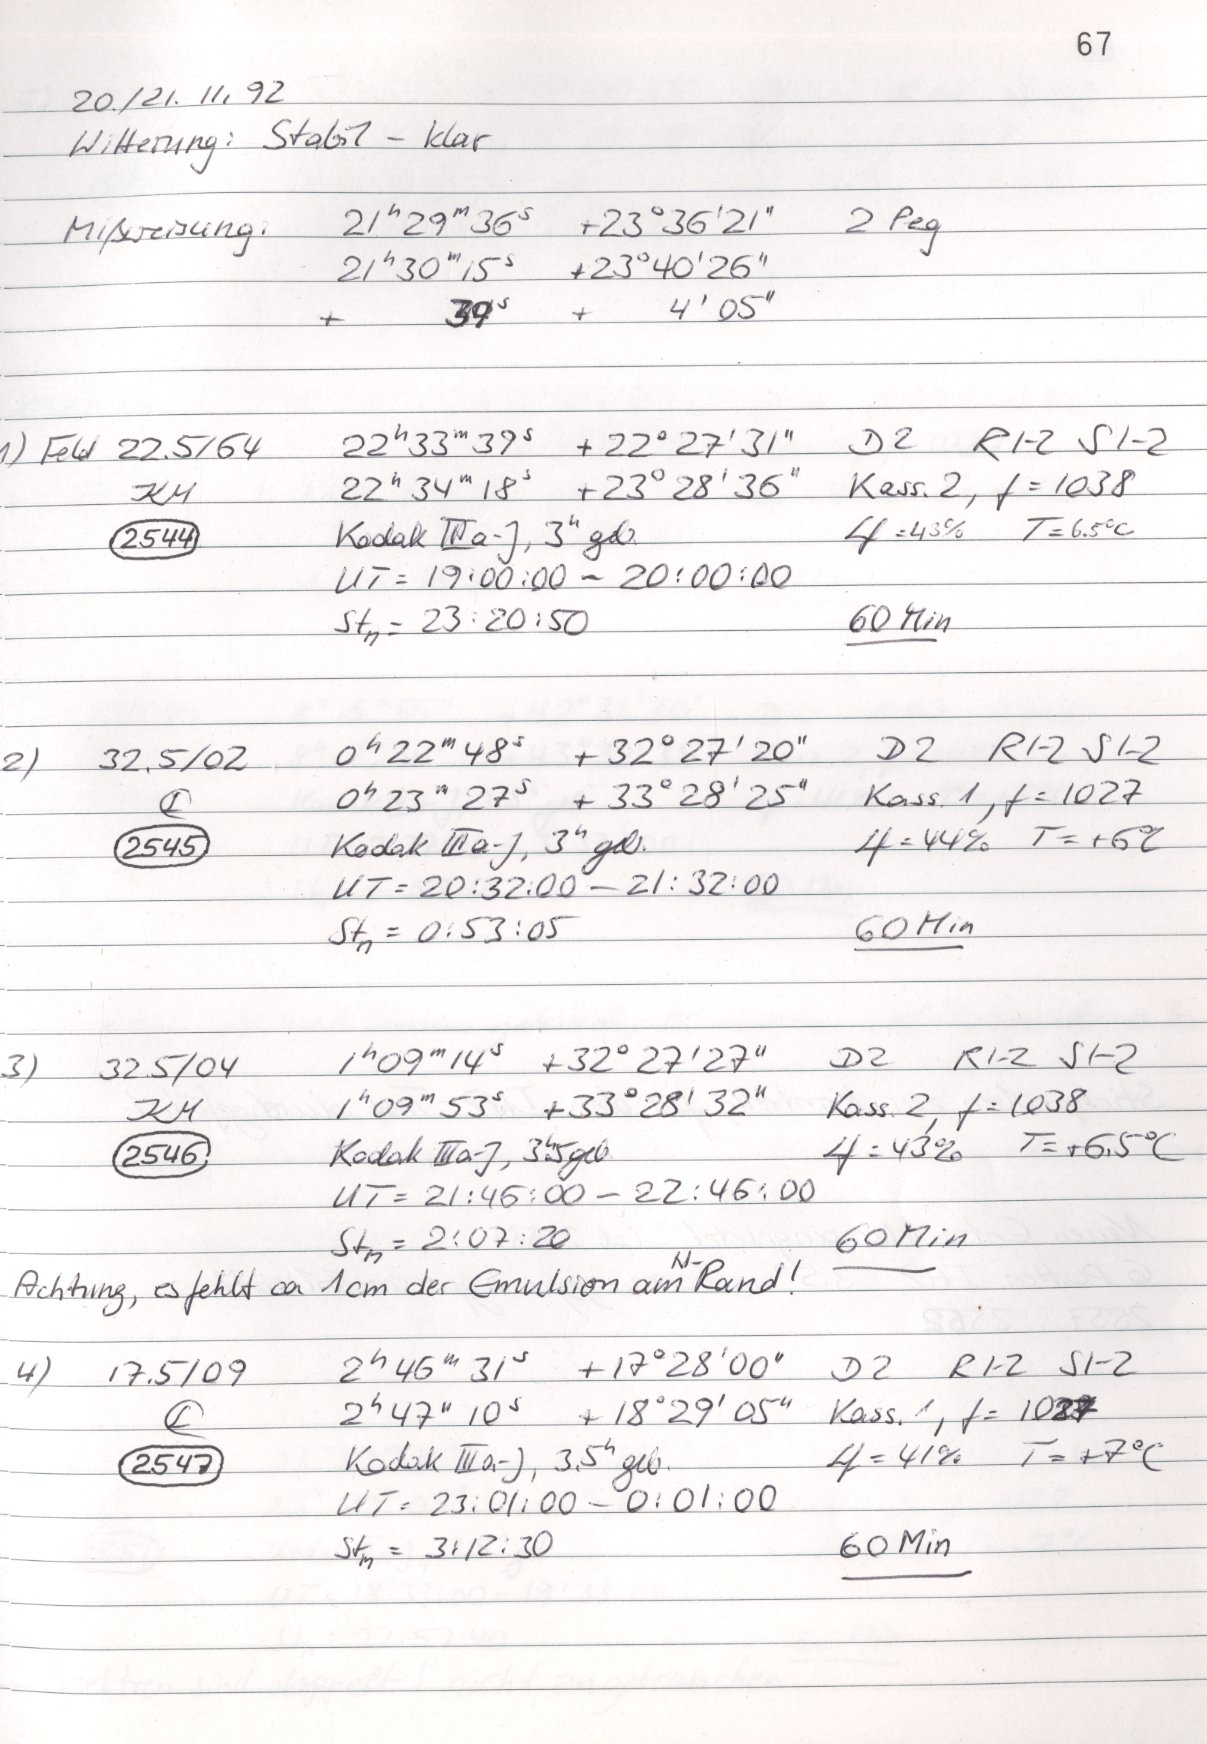 67
20./21. 11. 92
Witterung: Stabil – klar
Mißweisung: 21ʰ29ᵐ36ˢ +23°36'21" 2 Peg
21ʰ30ᵐ15ˢ +23°40'26"
+ 39ˢ + 4'05"
1) Feld 22.5/64 22ʰ33ᵐ39ˢ +22°27'31" D2 R1-2 S1-2
KM 22ʰ34ᵐ18ˢ +23°28'36" Kass. 2, f = 1038
2544 Kodak IIIa-J, 3ʰ geb. =43% T=6.5°C
UT = 19:00:00 – 20:00:00
Stₙ = 23:20:50 60 Min
2) 32.5/02 0ʰ22ᵐ48ˢ +32°27'20" D2 R1-2 S1-2
0ʰ23ᵐ27ˢ +33°28'25" Kass. 1, f = 1027
2545 Kodak IIIa-J, 3ʰ geb. =44% T=+6°C
UT = 20:32:00 – 21:32:00
Stₙ = 0:53:05 60 Min
3) 32.5/04 1ʰ09ᵐ14ˢ +32°27'27" D2 R1-2 S1-2
KM 1ʰ09ᵐ53ˢ +33°28'32" Kass. 2, f = 1038
2546 Kodak IIIa-J, 3ʰ.5 geb =43% T=+6.5°C
UT = 21:46:00 – 22:46:00
Stₙ = 2:07:20 60 Min
Achtung, es fehlt ca 1cm der Emulsion am N-Rand!
4) 17.5/09 2ʰ46ᵐ31ˢ +17°28'00" D2 R1-2 S1-2
2ʰ47ᵐ10ˢ +18°29'05" Kass. 1, f = 1027
2547 Kodak IIIa-J, 3.5ʰ geb. =41% T=+7°C
UT = 23:01:00 – 0:01:00
Stₙ = 3:12:30 60 Min